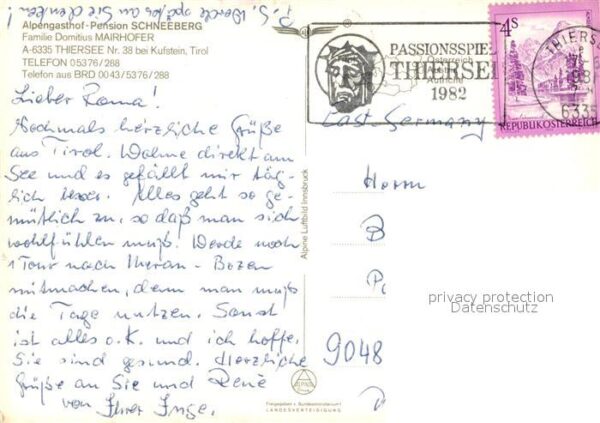 P.S. Werde später an Sie denken!
Alpengasthof - Pension SCHNEEBERG
Familie Domitius MAIRHOFER
A-6335 THIERSEE Nr. 38 bei Kufstein, Tirol
TELEFON 05376/288
Telefon aus BRD 0043/5376/288
Lieber Roma!
Nochmals herzliche Grüße
aus Tirol. Wohne direkt am
See und es gefällt mir täg-
lich besser. Alles geht so ge-
mütlich zu, so daß man sich
wohlfühlen muß. Werde noch
1 Tour nach Meran - Bozen
mitmachen, denn man muß
die Tage nutzen. Sonst
ist alles o.K. und ich hoffe,
Sie sind gesund. Herzliche
Grüße an Sie und René
von Ihrer Inge.
Alpine Luftbild Innsbruck
Freigegeben v. Bundesministerium f.
LANDESVERTEIDIGUNG
PASSIONSSPIELE
THIERSEE
1982
4 S
REPUBLIK ÖSTERREICH
THIERSEE
6335
East Germany
Herrn
B
P
9048
privacy protection
Datenschutz